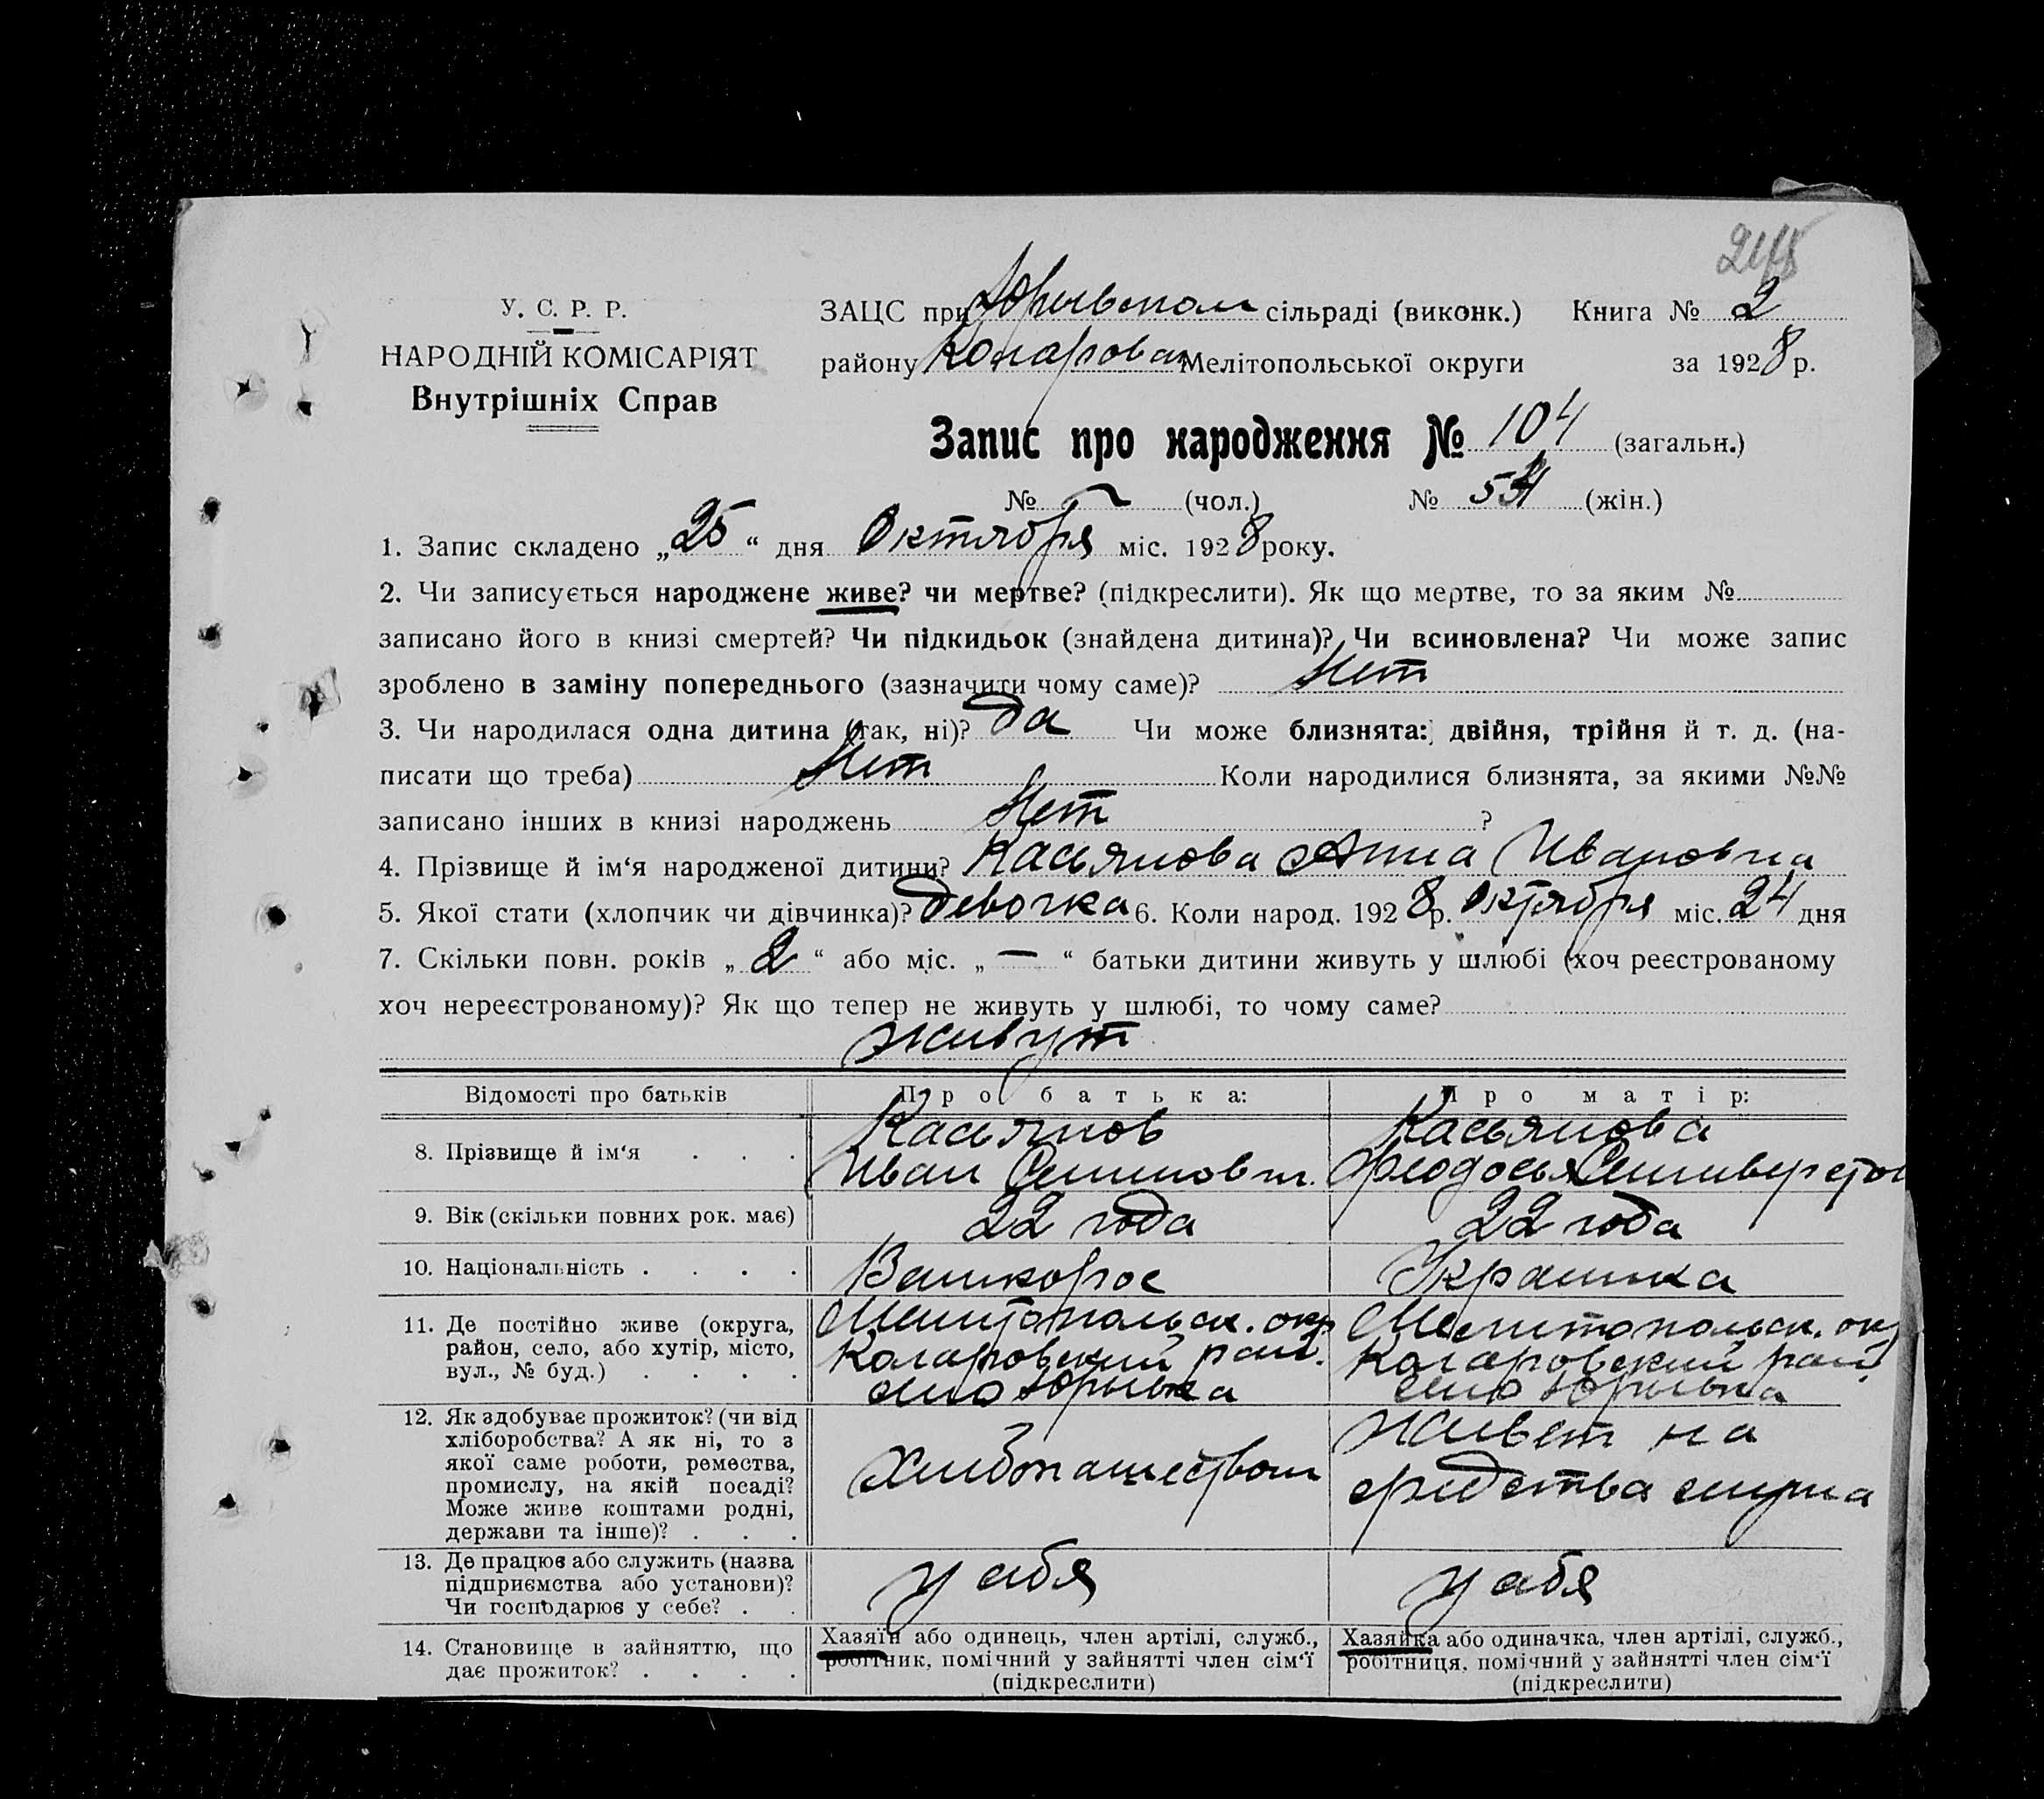 У. С. Р. Р.
НАРОДНІЙ КОМІСАРІЯТ
Внутрішніх Справ
ЗАЦС при Юрьевском сільраді (виконк.) Книга № 2
району Коларовск Мелітопольської округи за 1928 р.
Запис про народження № 104 (загальн.)
№ — (чол.) № 54 (жін.)
1. Запис складено „25“ дня Октября міс. 1928 року.
2. Чи записується народжене живе? чи мертве? (підкреслити). Як що мертве, то за яким №
записано його в книзі смертей? Чи підкидьок (знайдена дитина)? Чи всиновлена? Чи може запис
зроблено в заміну попереднього (зазначити чому саме)? Нет
3. Чи народилася одна дитина (так, ні)? да Чи може близнята: двійня, трійня й т. д. (на-
писати що треба) Нет Коли народилися близнята, за якими №№
записано інших в книзі народжень Нет ?
4. Прізвище й ім‘я народженої дитини? Касьянова Анна Ивановна
5. Якої стати (хлопчик чи дівчинка)? девочка 6. Коли народ. 1928 р. Октября міс. 24 дня
7. Скільки повн. років „2“ або міс. „—“ батьки дитини живуть у шлюбі (хоч реєстрованому
хоч нереєстрованому)? Як що тепер не живуть у шлюбі, то чому саме?
живут
Відомості про батьків Про батька: Про матір:
8. Прізвище й ім‘я . . . Касьянов Иван Касьянова Феодосья Селиверстов
9. Вік (скільки повних рок. має) 22 года 22 года
10. Національність . . . . Великорос Украинка
11. Де постійно живе (округа,
район, село, або хутір, місто,
вул., № буд.) . . . .
Мелитопольск. окр Коларовский рай. село Юрьевка
Мелитопольск. окр Коларовский рай. село Юрьевка
12. Як здобуває прожиток? (чи від
хліборобства? А як ні, то з
якої саме роботи, ремества,
промислу, на якій посаді?
Може живе коштами родні,
держави та інше)? . . .
Хлебопашеством
живет на средства мужа
13. Де працює або служить (назва
підприємства або установи)?
Чи господарює у себе? . .
у себя
у себя
14. Становище в зайняттю, що
дає прожиток? . . . .
Хазяїн або одинець, член артілі, служб.,
робітник, помічний у зайнятті член сім‘ї
(підкреслити)
Хазяйка або одиначка, член артілі, служб.,
робітниця, помічний у зайнятті член сім‘ї
(підкреслити)